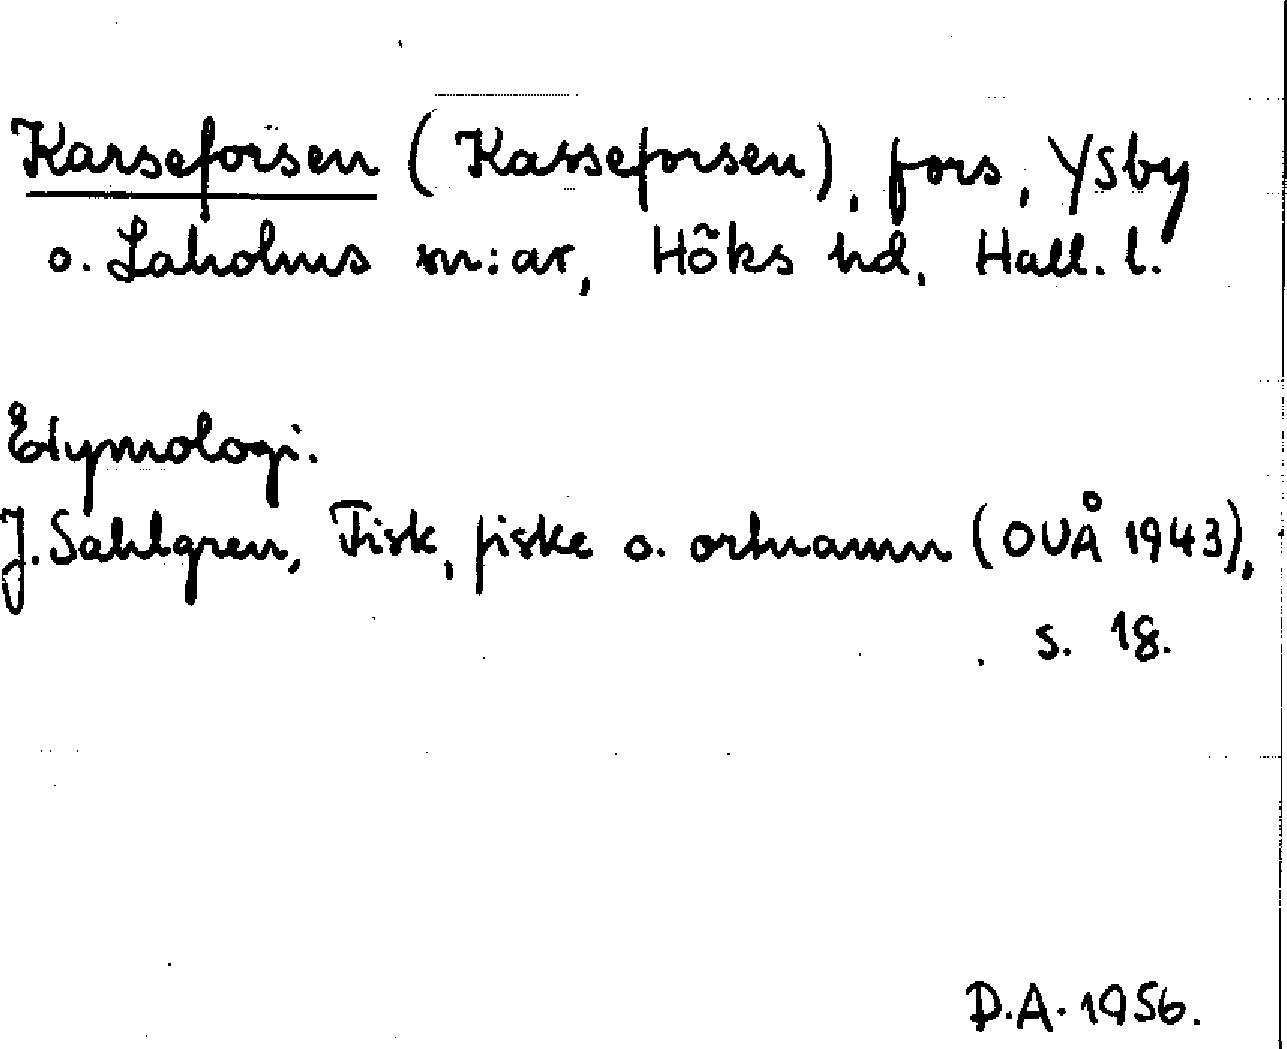 Karseforsen (Kasseforsen), fors, Ysby
o. Laholms sn:ar, Höks hd, Hall. l.
Etymologi.
J. Sahlgren, Fisk, fiske o. ortnamn (OUÅ 1943),
s. 18.
D.A. 1956.